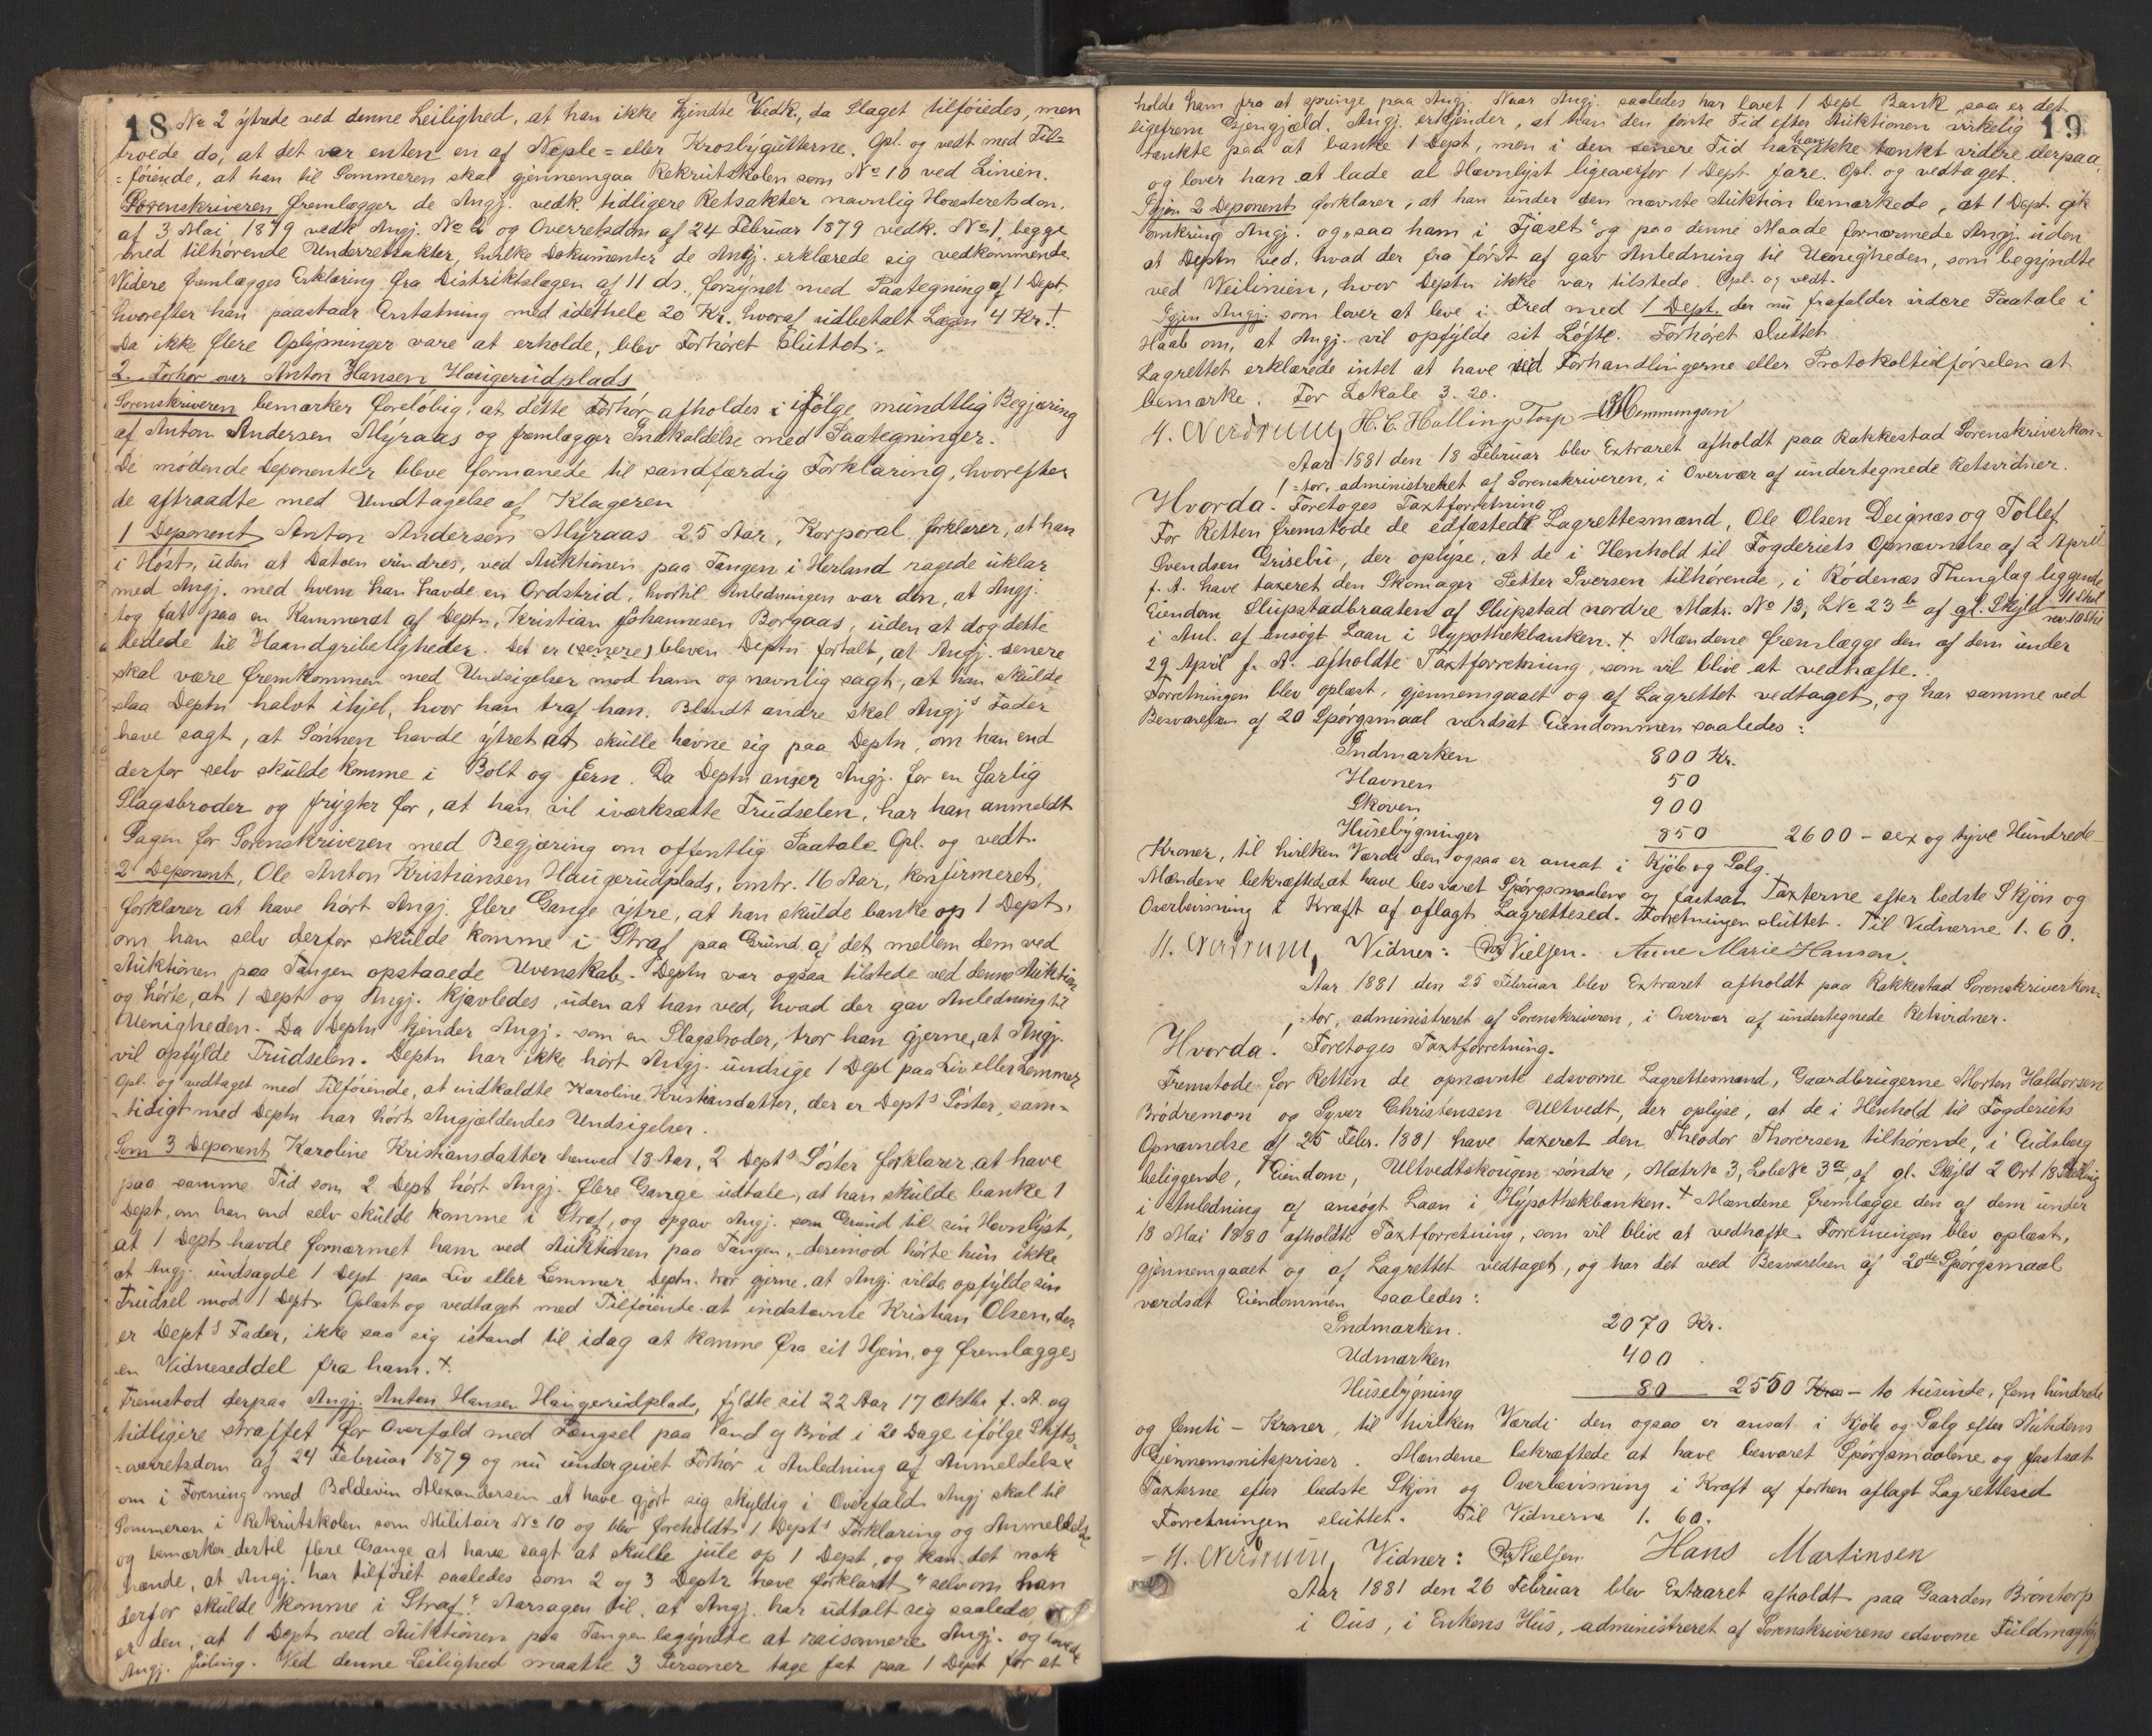 18 No 2 ytrede ved denne Leilighed, at han ikke kjendte Vedk., da Slaget tilföiedes, men
troede da, at det var enten en af Neple= eller Krosbygutterne. Opl. og vedt med Til=
=föiende, at han til Sommeren skal gjennemgaa Rekrutskolen som No 10 ved Linien.
Sorenskriveren fremlægger de Angj. vedk. tidligere Retsakter navnlig Høiesteretsdom.
af 3 Mai 1879 vedk Angj. No 2 og Overretsdom af 24 Februar 1879 vedk. No 1, begge
med tilhørende Underretsakter, hvilke Dokumenter de Angj. erklærede sig vedkommende.
Videre fremlægges Erklæring fra Distriktslægen af 11 ds., forsynet med Paategning af 1 Dept.
hvorefter han paastaar Erstatning med idethele 20 Kr. hvoraf udbetalt Lægen 4 Kr. †
Da ikke flere Oplysninger vare at erholde, blev Forhöret Sluttet.
2. Forhör over Anton Hansen Haugerudplads
Sorenskriveren bemærker forelöbig, at dette Forhör afholdes i ifölge mundtlig Begjæring
af Anton Andersen Myraas og fremlægger Indkaldelse med Paategninger.
De mödende Deponenter bleve formanede til sandfærdig Forklaring, hvorefter
de aftraadte med Undtagelse af Klageren
1 Deponent Anton Andersen Myraas 25 Aar, Korporal forklarer, at han
i Höst, uden at Datoen erindres, ved Auktionen paa Tangen i Herland ragede uklar
med Angj. med hvem han havde en Ordstrid, hvortil Anledningen var den, at Angj.
tog fat paa en Kammerat af Deptn, Kristian Johannesen Borgaas, uden at dog dette
ledede til Haandgribeligheder. Det er (senere) bleven Deptn fortalt, at Angj. senere
skal være fremkommen med Undsigelser mod ham og navnlig sagt, at han skulde
slaa Deptn halvt ihjel, hvor han traf han. Blandt andre skal Angjs Fader
have sagt, at Sönnen havde ytret at skulle hevne sig paa Deptn, om han end
derfor selv skulde komme i Bolt og Jern. Da Deptn anser Angj. for en farlig
Slagsbroder og frygter for, at han vil iværksætte Trudselen, har han anmeldt
Sagen for Sorenskriveren med Begjæring om offentlig Paatale Opl. og vedt.
2 Deponent, Ole Anton Kristiansen Haugerudplads, omtr. 16 Aar, konfirmeret,
forklarer at have hört Angj flere Gange ytre, at han skulde banke op 1 Dept,
om han selv derfor skulde komme i Straf paa Grund af det mellem dem ved
Auktionen paa Tangen opstaaede Uvenskab. Deptn var ogsaa tilstede ved denne Auktion
og hörte, at 1 Dept og Angj. kjævledes, uden at han ved, hvad der gav Anledning til
Uenigheden. Da Deptn kjender Angj. som en Slagsbroder, tror han gjerne, at Angj.
vil opfylde Trudselen. Deptn har ikke hört Angj. undsige 1 Dept paa Liv eller Lemmer
Opl. og vedtaget med Tilföiende, at indkaldte Karoline Kristiansdatter, der er Depts Söster, sam=
=tidigt med Deptn har hört Angjældendes Undsigelser.
Som 3 Deponent Karoline Kristiansdatter henved 18 Aar, 2 Depts Söster forklarer at have
paa samme Tid som 2 Dept hört Angj. flere Gange udtale, at han skulde banke 1
Dept, om han end selv skulde komme i Straf, og opgav Angj. som Grund til sin Hevnlyst,
at 1 Dept havde fornærmet ham ved Auktionen paa Tangen, derimod hörte hun ikke
at Angj. undsagde 1 Dept paa Liv eller Lemmer Deptn. tror gjerne, at Angj. vilde opfylde sin
Trudsel mod 1 Dept. Oplæst og vedtaget med Tilföiende at indstævnte Kristian Olsen, der
er Depts Fader, ikke saa sig istand til idag at komme fra sit Hjem, og fremlægges
en Vidneseddel fra ham. †.
Fremstod derpaa Angj. Anton Hansen Haugerudplads, fyldte sit 22 Aar 17 Oktbr f. A. og
tidligere straffet for Overfald med Fængsel paa Vand og Bröd i 20 Dage ifölge Stifts=
=overretsdom af 24 Februar 1879 og nu undergivet Forhör i Anledning af Anmeldelse
om i Forening med Boldevin Alexandersen at have gjort sig skyldig i Overfald. Angj skal til
Sommeren i Rekrutskolen som Militair No 10 og blev foreholdt 1 Depts Forklaring og Anmeldelse
og bemærker dertil flere Gange at have sagt at skulle jule op 1 Dept, og kan det nok
hænde, at Angj. har tilföiet saaledes som 2 og 3 Deptr have forklaret "selv om han
derfor skulde komme i Straf". Aarsagen til, at Angj. har udtalt sig saaledes
er den, at 1 Dept ved Auktionen paa Tangen begyndte at raisonnere Angj. og lovede
Angj. Juling. Ved denne Leilighed maatte 3 Personer tage fat paa 1 Dept for at
19
holde ham fra at springe paa Angj. Naar Angj. saaledes har lovet 1 Dept Bank, saa er det
ligefrem Gjengjæld. Angj. erkjender, at han den förste Tid efter Auktionen virkelig
tænkte paa at banke 1 Dept, men i den senere Tid har han ikke tænkt videre derpaa,
og lover han at lade al Hævnlyst ligeoverfor 1 Dept fare. Opl. og vedtaget.
Igjen 2 Deponent forklarer, at han under den nævnte Auktion bemærkede, at 1 Dept. gik
omkring Angj. og "saa ham i Fjæset" og paa denne Maade fornærmede Angj. uden
at Deptn ved, hvad der fra först af gav Anledning til Uenigheden, som begyndte
ved Veilinien, hvor Deptn ikke var tilstede. Opl. og vedt.
Igjen Angj. som lover at leve i Fred med 1 Dept. der nu frafalder videre Paatale i
Haab om, at Angj. vil opfylde sit Löfte. Forhöret sluttet.
Lagrettet erklærede intet at have ved Forhandlingerne eller Protokoltilförselen at
bemærke. For Lokale 3. 20.
H. Nerdrum, H. C. Halling Torp Hemmingsen
Aar 1881 den 18 Februar blev Extraret afholdt paa Rakkestad Sorenskriverkon=
=tor, administreret af Sorenskriveren, i Overvær af undertegnede Retsvidner.
Hvorda! Foretoges Taxtforretning
For Retten fremstode de edfæstede Lagrettesmænd, Ole Olsen Deignæs og Tollef
Svendsen Grisebu, der oplyse, at de i Henhold til Fogderiets Opnævnelse af 2 April
f. A. have taxeret den Skomager Petter Iversen tilhørende, i Rödenæs Thinglag liggende
Eiendom Slupstadbraaten af Slupstad nordre Matr. No 13, LNo 23 b af gl. Skyld 11 Skil
i Anl. af ansögt Laan i Hypothekbanken. † Mændene fremlægge den af dem under
29 April f. A. afholdte Taxtforretning, som vil blive at vedhæfte.
Forretningen blev oplæst, gjennemgaaet og af Lagrettet vedtaget, og har samme ved
Besvarelsen af 20 Spörgsmaal værdsat Eiendommen saaledes:
Indmarken 800 Kr.
Havnen 50
Skoven 900
Husebygninger 850 2600 - sex og tyve Hundrede
Kroner, til hvilken Værdi den ogsaa er ansat i Kjöb og Salg.
Mændene bekræftede at have besvaret Spörgsmaalene og fastsat Taxterne efter bedste Skjön og
Overbevisning i Kraft af aflagt Lagrettesed. Forretningen sluttet. Til Vidnerne 1. 60.
H. Nerdrum, Vidner: Nielsen. Anne Marie Hansen.
Aar 1881 den 25 Februar blev Extraret afholdt paa Rakkestad Sorenskriverkon=
=tor, administreret af Sorenskriveren, i Overvær af undertegnede Retsvidner.
Hvorda! Foretoges Taxtforretning.
Fremstode for Retten de opnævnte edsvorne Lagrettesmænd, Gaardbrugerne Morten Haldorsen
Brödremoen og Syver Christensen Ultvedt, der oplyse, at de i Henhold til Fogderiets
Opnævnelse af 25 Febr. 1881 have taxeret den Theodor Thoresen tilhørende, i Eidsberg
beliggende, Eiendom, Ultvedtskougen söndre, Matr No 3, Löbe No 3 a, af gl. Skyld 2 Ort 18 Skilling
i Anledning af ansögt Laan i Hypothekbanken. † Mændene fremlægge den af dem under
18 Mai 1880 afholdte Taxtforretning, som vil blive at vedhæfte. Forretningen blev oplæst,
gjennemgaaet og af Lagrettet vedtaget, og har det ved Besvarelsen af 20de Spörgsmaal
værdsat Eiendommen saaledes:
Indmarken. 2070 Kr.
Udmarken 400
Husebygning 80 2550 Kro - to tusinde, fem hundrede
og femti - Kroner, til hvilken Værdi den ogsaa er ansat i Kjöb og Salg efter Nutidens
Gjennemsnitspriser. Mændene bekræftede at have besvaret Spörgsmaalene og fastsat
Taxterne efter bedste Skjön og Overbevisning i Kraft af forhen aflagt Lagrettesed
Forretningen sluttet. Til Vidnerne 1. 60.
H. Nerdrum, Vidner: Nielsen. Hans Martinsen
Aar 1881 den 26 Februar blev Extraret afholdt paa Gaarden Bröntorp
i Ous, i Enkens Hus, administreret af Sorenskriverens edsvorne Fuldmægtig